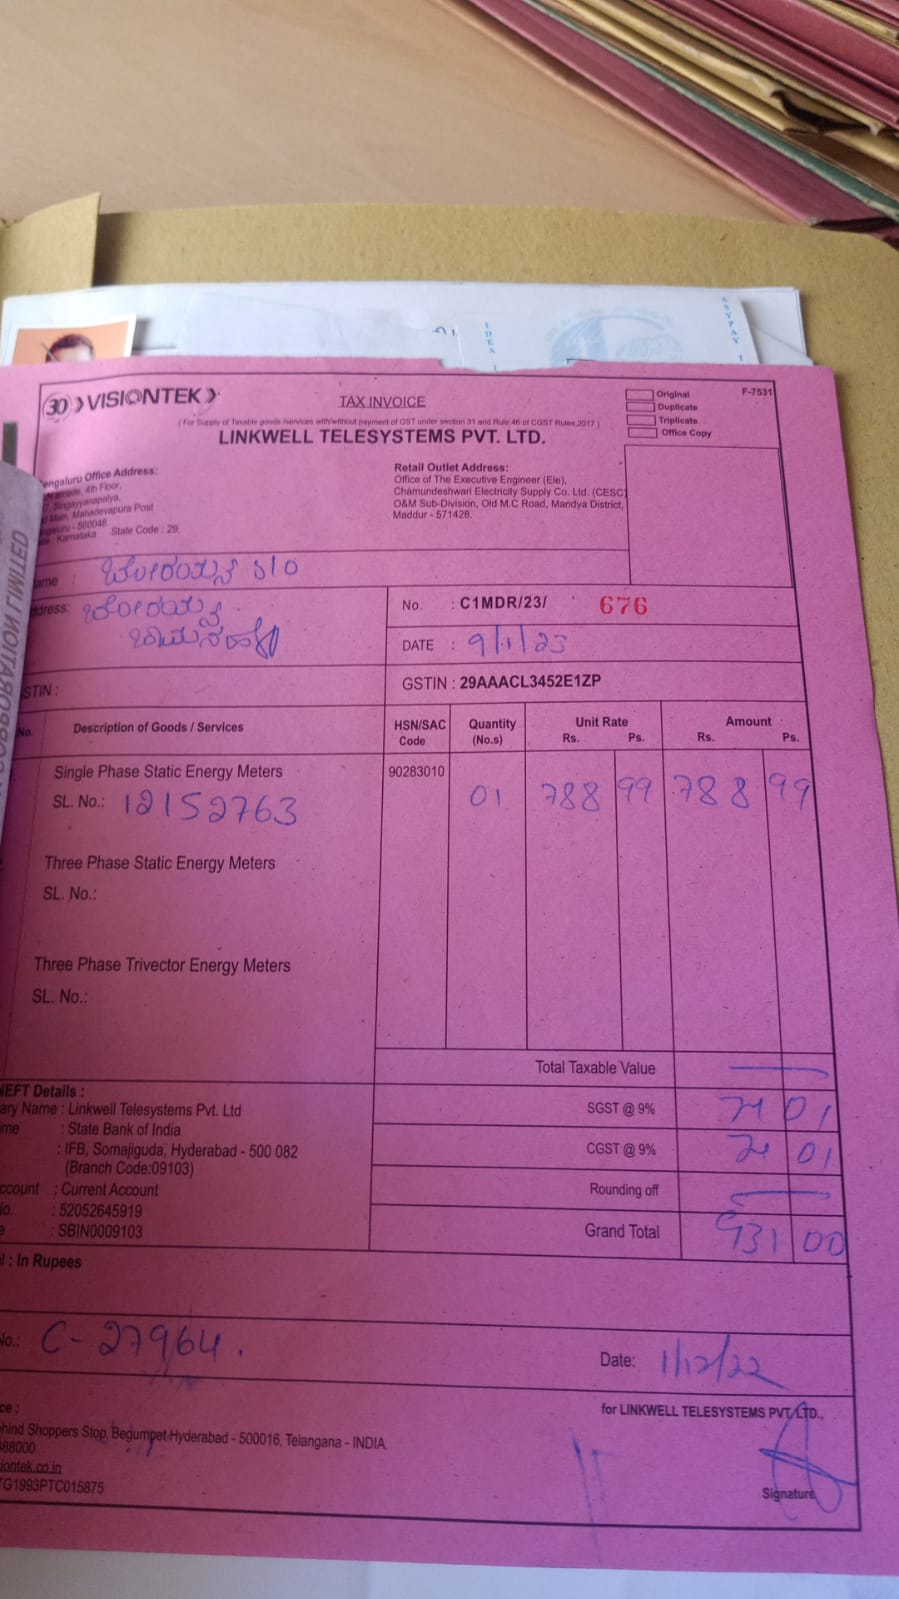 30 VISIONTEK
TAX INVOICE
Original
F-7531
Duplicate
Triplicate
Office Copy
( For Supply of Taxable goods /services with/without payment of GST under section 31 and Rule 46 of CGST Rules,2017 )
LINKWELL TELESYSTEMS PVT. LTD.
engaluru Office Address:
4th Floor,
Singayyanapalya,
Main, Mahadevapura Post
- 560048
Karnataka State Code : 29.
Retail Outlet Address:
Office of The Executive Engineer (Ele),
Chamundeshwari Electricity Supply Co. Ltd. (CESC)
O&M Sub-Division, Old M.C Road, Mandya District,
Maddur - 571428.
ame : S/O
ddress:
No. : C1MDR/23/ 676
DATE : 9/1/23
STIN :
GSTIN : 29AAACL3452E1ZP
No. Description of Goods / Services HSN/SAC Code Quantity (No.s) Unit Rate Rs. Ps. Amount Rs. Ps.
Single Phase Static Energy Meters 90283010
SL. No.: 12152763 01 788 99 788 99
Three Phase Static Energy Meters
SL. No.:
Three Phase Trivector Energy Meters
SL. No.:
Total Taxable Value
NEFT Details :
ary Name : Linkwell Telesystems Pvt. Ltd
me : State Bank of India
: IFB, Somajiguda, Hyderabad - 500 082
(Branch Code:09103)
ccount : Current Account
No. : 52052645919
e : SBIN0009103
SGST @ 9% 71 01
CGST @ 9% 71 01
Rounding off
Grand Total 931 00
l : In Rupees
No.: C-27964.
Date: 1/12/22
ce :
ehind Shoppers Stop, Begumpet Hyderabad - 500016, Telangana - INDIA.
88000
siontek.co.in
TG1993PTC015875
for LINKWELL TELESYSTEMS PVT LTD.,
Signature